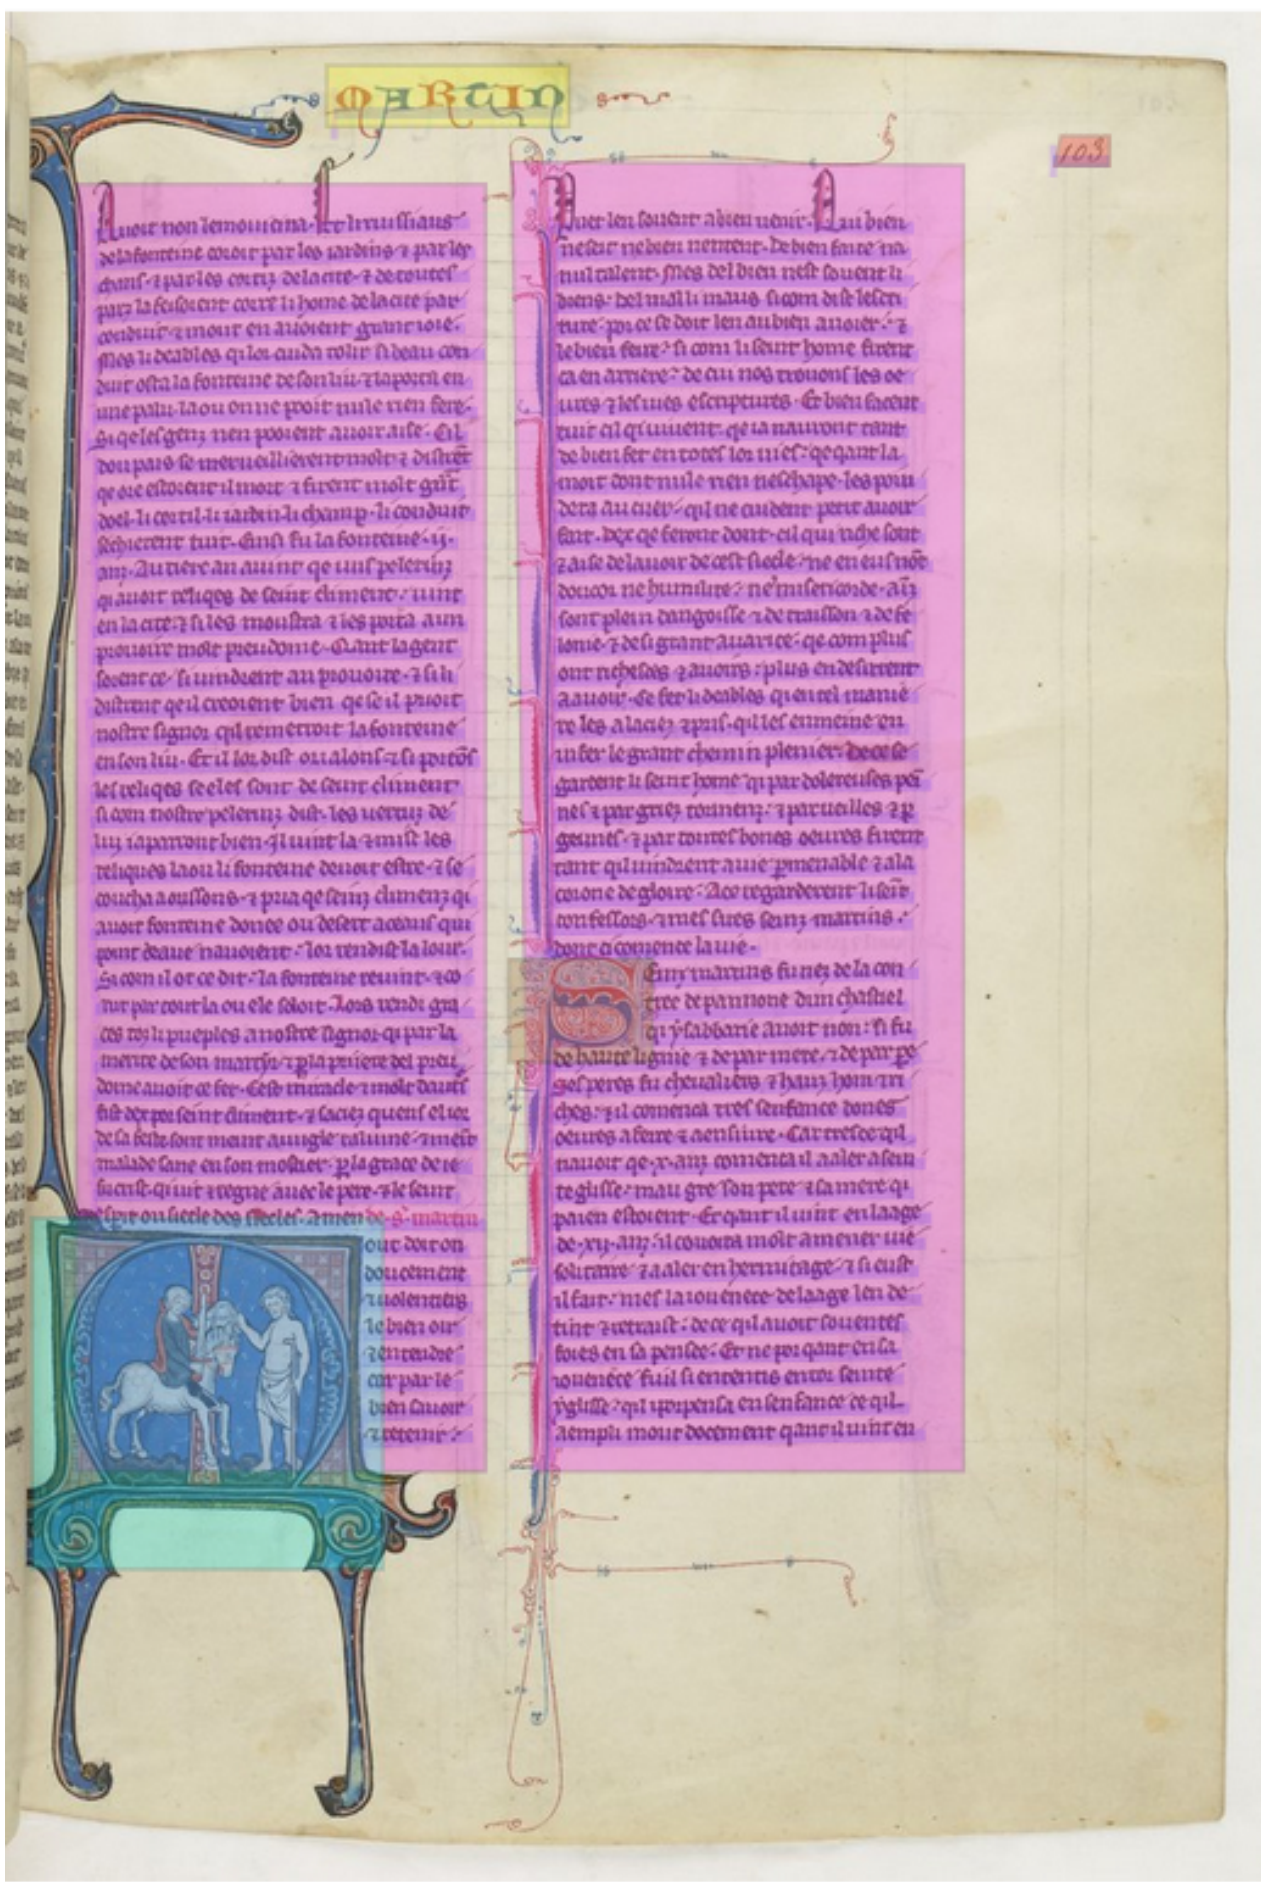 MARTIN
103
Auoit non lemouicena. Et li ruissiaus
de la fonteine coroit par les iardins ⁊ par les
chans ⁊ par les cortiz de la cite ⁊ de toutes
parz la fesoient corre li home de la cite par
conduit ⁊ mout en auoient grant ioie.
Mes li deables qi lor cuida tolir si beau con
duit osta la fonteine de son liu ⁊ la porta en
une palu la ou on ne pooit nule rien fere.
Si qe les genz nen pooient auoir aise. Cil
dou pais se merueillierent molt ⁊ distrēt
qe ore estoient il mort ⁊ firent molt grāt
doel. li cortil. li iardin. li champ. li conduit
sechierent tuit. Einsi fu la fonteine .ij.
anz. Au tierc an auint qe uns pelerinz
qi auoit reliqes de seint climent. uint
en la cite ⁊ si les moustra ⁊ les porta a un
prouoire molt preudome. Quant la gent
sorent ce. si uindrent au prouoire ⁊ si li
distrent qe il creoient bien qe se il prioit
nostre signor qil remetroit la fonteine
en son liu. Et il lor dist or i alons ⁊ si portōs
les reliqes se eles sont de seint climent
si com nostre pelerinz dist. les uertuz de
lui i aparront bien. Il uint la ⁊ mist les
reliques la ou li fonteine deuoit estre ⁊ se
coucha a oussons ⁊ pria qe seinz climenz qi
auoit fonteine donee ou desert a ceaus qui
point deaue nauoient. lor rendist la lour.
Si com il ot ce dit. la fonteine reuint ⁊ co
rut par tout la ou ele soloit. Lors rendi gra
ces toz li pueples a nostre signor qi par la
merite de son martyr ⁊ ꝑ la priiere del preu
dome auoit ce fet. Cest miracle ⁊ molt dautˢ
fist dex por seint climent. ⁊ sachiez quens el ior
de sa feste sont meint auugle ralume ⁊ meīt
malade sane en son mostier. ꝑ la grace de ie
sucrist. qi uit ⁊ regne auec le pere ⁊ le seint
esprit ou siecle des siecles. Amen de .s. martin
out doit on
doucement
⁊ uolentiers
le bien oir
⁊ entendre
car par le
bien sauoir
⁊ retenir.
Puet len souent a bien uenir. Qui bien
ne seit ne bien nentent. De bien faire na
nul talent. Mes del bien nest souent li
biens. del mal li maus si com dist lescri
ture. por ce se doit len au bien auoier. ⁊
le bien feire. si com li seint home firent
ca en arriere. de cui nos trouons les oe
ures ⁊ les uies escriptures. Et bien sacent
tuit cil qi uiuent. qe ia nauront tant
de bien fet en totes lor uies. qe qant la
mort dont nule rien neschape. les pren
dera au cuer. qil ne cuident petit auoir
fait. Dex qe feront dont. cil qui riche sont
⁊ aise de lauoir de cest siecle. ne en eus nōt
doucor ne humilite. ne misericorde. Ainz
sont plein dangoisse ⁊ de traisson ⁊ de fe
lonie. ⁊ de si grant auarice. qe com plus
ont richeises ⁊ auoirs. plus en desirrent
a auoir. Ce fet li deables qi en tel manie
re les a laciez ⁊ pris. qil les enmeine en
infer le grant chemin plenier. De ce se
gardent li seint home qi par dolereuses pei
nes ⁊ par griez tormenz. ⁊ par ueilles ⁊ ꝑ
geunes. ⁊ par toutes bones oeures firent
tant qil uindrent a uie ꝑmenable ⁊ a la
corone de gloire. A ce regarderent li seīt
confessors. ⁊ mes sires seinz martins.
dont ci comence la uie.
Seinz martins fu nez de la con
tree de pannone dun chastiel
qi ysabbarie auoit non. si fu
de haute lignie ⁊ de par mere. ⁊ de par pe
ses peres fu cheualiers ⁊ hauz hom ⁊ ri
ches. ⁊ il comenca tres senfance bones
oeures a feire ⁊ a ensiure. Car tresce qil
nauoit qe .x. anz comenca il a aler a sein
te glisse. mau gre son pere ⁊ sa mere qi
paien estoient. Et qant il uint en laage
de .xij. anz. il couoita molt a mener uie
solitaire ⁊ a aler en hermitage ⁊ si eust
il fait. mes la iouenece de laage len de
tint ⁊ retraist. de ce qil auoit souentes
foies en sa pensee. Et ne por qant en sa
iouenece fu il si ententis entor seinte
yglisse. qil porpensa en senfance ce qil
aempli mout docement qant il uint en